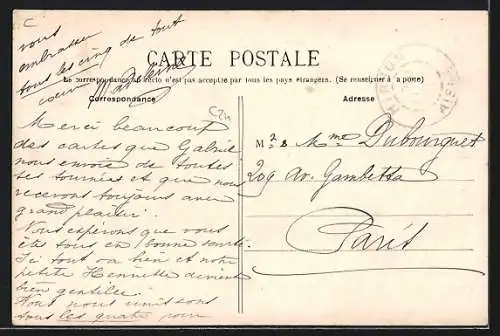 C
vous
embrasser
tous les cinq de tout
coeur Madeleine
CARTE POSTALE
La correspondance au recto n'est pas acceptée par tous les pays étrangers. (Se renseigner à la poste)
Correspondance
Adresse
HIRSON
AISNE
C24
Merci beaucoup
des cartes que Gabriel
nous envoie de toutes
ses tournées et que nous
recevons toujours avec
grand plaisir.
Nous espérons que vous
êtes tous en bonne santé.
Ici tout va bien et notre
petite Henriette devient
bien gentille.
Nous nous unissons
tous les quatre pour
M & Mme Dubourguet
209 Av. Gambetta
Paris